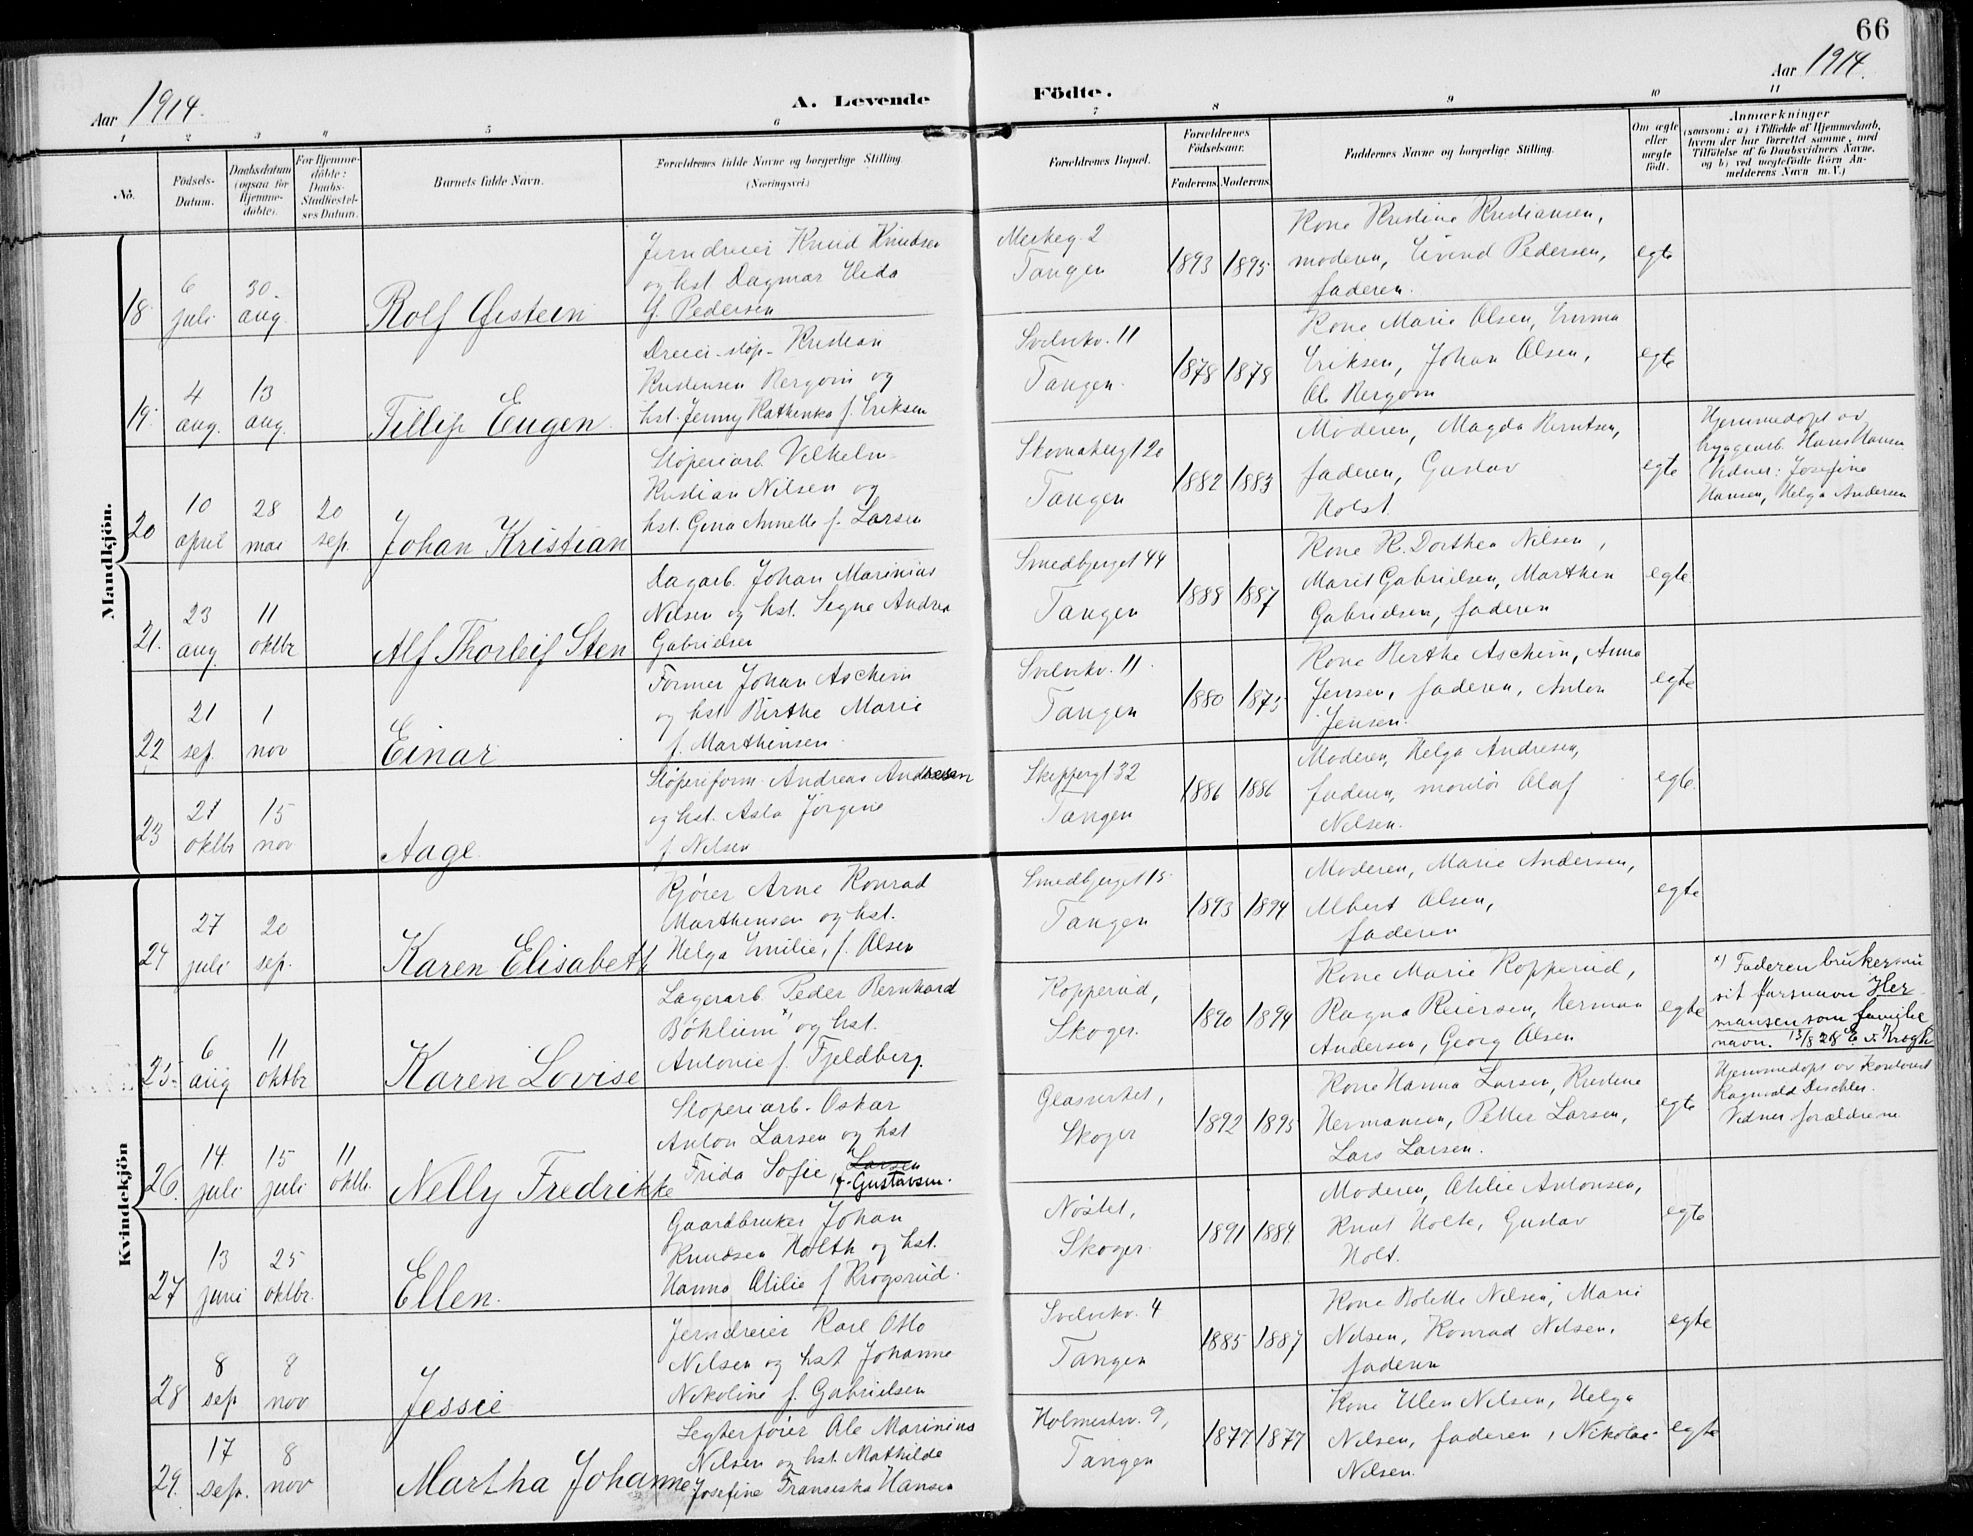 66
Aar 1914.
A. Levende
Födte.
Aar 1914.
1 2 3 4 5 6 7 8 9 10 11
No.
Födsels-
Datum.
Daabsdatum
(ogsaa for
Hjemme-
döbte).
For Hjemme-
döbte:
Daabs-
Stadfæstel-
ses Datum.
Barnets fulde Navn.
Forældrenes fulde Navne og borgerlige Stilling
(Næringsvei.)
Forældrenes Bopæl.
Forældrenes
Födselsaar.
Faderens. Moderens.
Faddernes Navne og borgerlige Stilling.
Om ægte
eller
uægte
födt.
Anmærkninger
(saasom: a) i Tilfælde af Hjemmedaab,
hvem der har forrettet samme, med
Tilföielse af to Daabsvidners Navne,
og b) ved uegtefödte Börn An-
melderens Navn m. V.)
Mandkjön.
18.
6
juli
30
aug.
Rolf Øistein
Jerndreier Knud Knudsen
og hst Dagmar
f. Pedersen
Tangen
1893 1895
Kone Kristine Kristiansen,
moderen, Eivind Pedersen,
faderen.
egte
19.
4
aug.
13
aug.
Fillip Eugen
Kristian
Kristensen Bergom og
hst. Jenny Kathinka f. Eriksen
Svelvikv. 11
Tangen.
1878 1878
Kone Marie Olsen, Emma
Eriksen, Johan Olsen,
Ole Bergom
egte
20
10
april
28
mai
20
sep.
Johan Kristian
Støperiarb. Vilhelm
Kristian Nilsen og
hst. Gina Annette f. Larsen
Tangen
1882 1883
Moderen, Magda Berntsen,
faderen, Gustav
Holst
egte
Hjemmedøpt av
byggearb. Hans Hansen
Vidner: Josefine
Hansen, Helga Andersen
21.
23
aug.
11
oktbr
Alf Thorleif Sten
Dagarb. Johan Marinius
Nilsen og hst. Signe Andrea
Gabrielsen
Smedbjerget 44
Tangen
1888 1887
Kone K. Dorthea Nilsen,
Marit Gabrielsen, Marthin
Gabrielsen, faderen
egte
22
21
sep.
1
nov
Einar
Former Johan Aschim
og hst Berthe Marie
f. Marthinsen.
Svelvikv. 11.
Tangen
1880 1875
Kone Berthe Aschim, Anna
Jensen, faderen, Anton
Jensen.
egte
23
21
oktbr
15
nov
Aage
Støperiform. Andreas Andresen
og hst. Asta Jørgine
f. Nilsen
Skippergt 32
Tangen
1886 1886
Moderen, Helga Andresen,
faderen, montør Olaf
Nilsen.
egte.
Kvindekjön
24
27
juli
20
sep.
Karen Elisabeth
Kjører Arne Konrad
Marthinsen og hst.
Helga Emilie, f. Olsen
Smedbjerget 15
Tangen
1893 1894
Moderen, Marie Andersen,
Albert Olsen,
faderen
egte
25.
6
aug
11
oktbr
Karen Lovise
Lagerarb. Peder Bernhard
Bøhleim x) og hst.
Antonie f. Fjeldberg.
Kopperud,
Skoger.
1890 1894
Kone Marie Kopperud,
Ragna Reiersen, Herman
Andersen, Georg Olsen
egte
x) Faderen bruker nu
sit farsnavn Her
mansen som familie
navn. 13/8 28 E. v. Krogh
26.
14
juli
15
juli
11
oktb.
Nelly Fredrikke
Støperiarb. Oskar
Anton Larsen og hst
Frida Sofie Larsen
f. Gustavsen.
Glassverket,
Skoger
1892 1895
Kone Hanna Larsen, Kristine
Hermansen, Petter Larsen,
Lars Larsen.
egte
Hjemmedøpt av Kontorist
Ragnvald
Vidner forældrene
27
13
juni
25
oktbr.
Ellen.
Gaardbruker Johan
Knudsen Holth og hst.
Hanna Otilie f Krogsrud.
Nøstet,
Skoger.
1891 1889
Moderen, Otilie Antonsen,
Knut Holte, Gustav
Holt.
egte
28
8
sep
8
nov
Jessie
Jerndreier Karl Otto
Nilsen og hst Johanne
Nikoline f. Gabrielsen
Svelvikv. 4
Tangen
1885 1887
Kone Bolette Nilsen, Marie
Nilsen, Konrad Nilsen,
faderen
egte
29.
17
sep.
8
nov
Martha Johanne
Ole Marinius
Nilsen og hst. Mathilde
Josefine Fransiska Hansen
Holmestrv. 9,
Tangen
1877 1877
Kone Nilsen, Helga
Nilsen, faderen, Nikolai
Nilsen.
egte